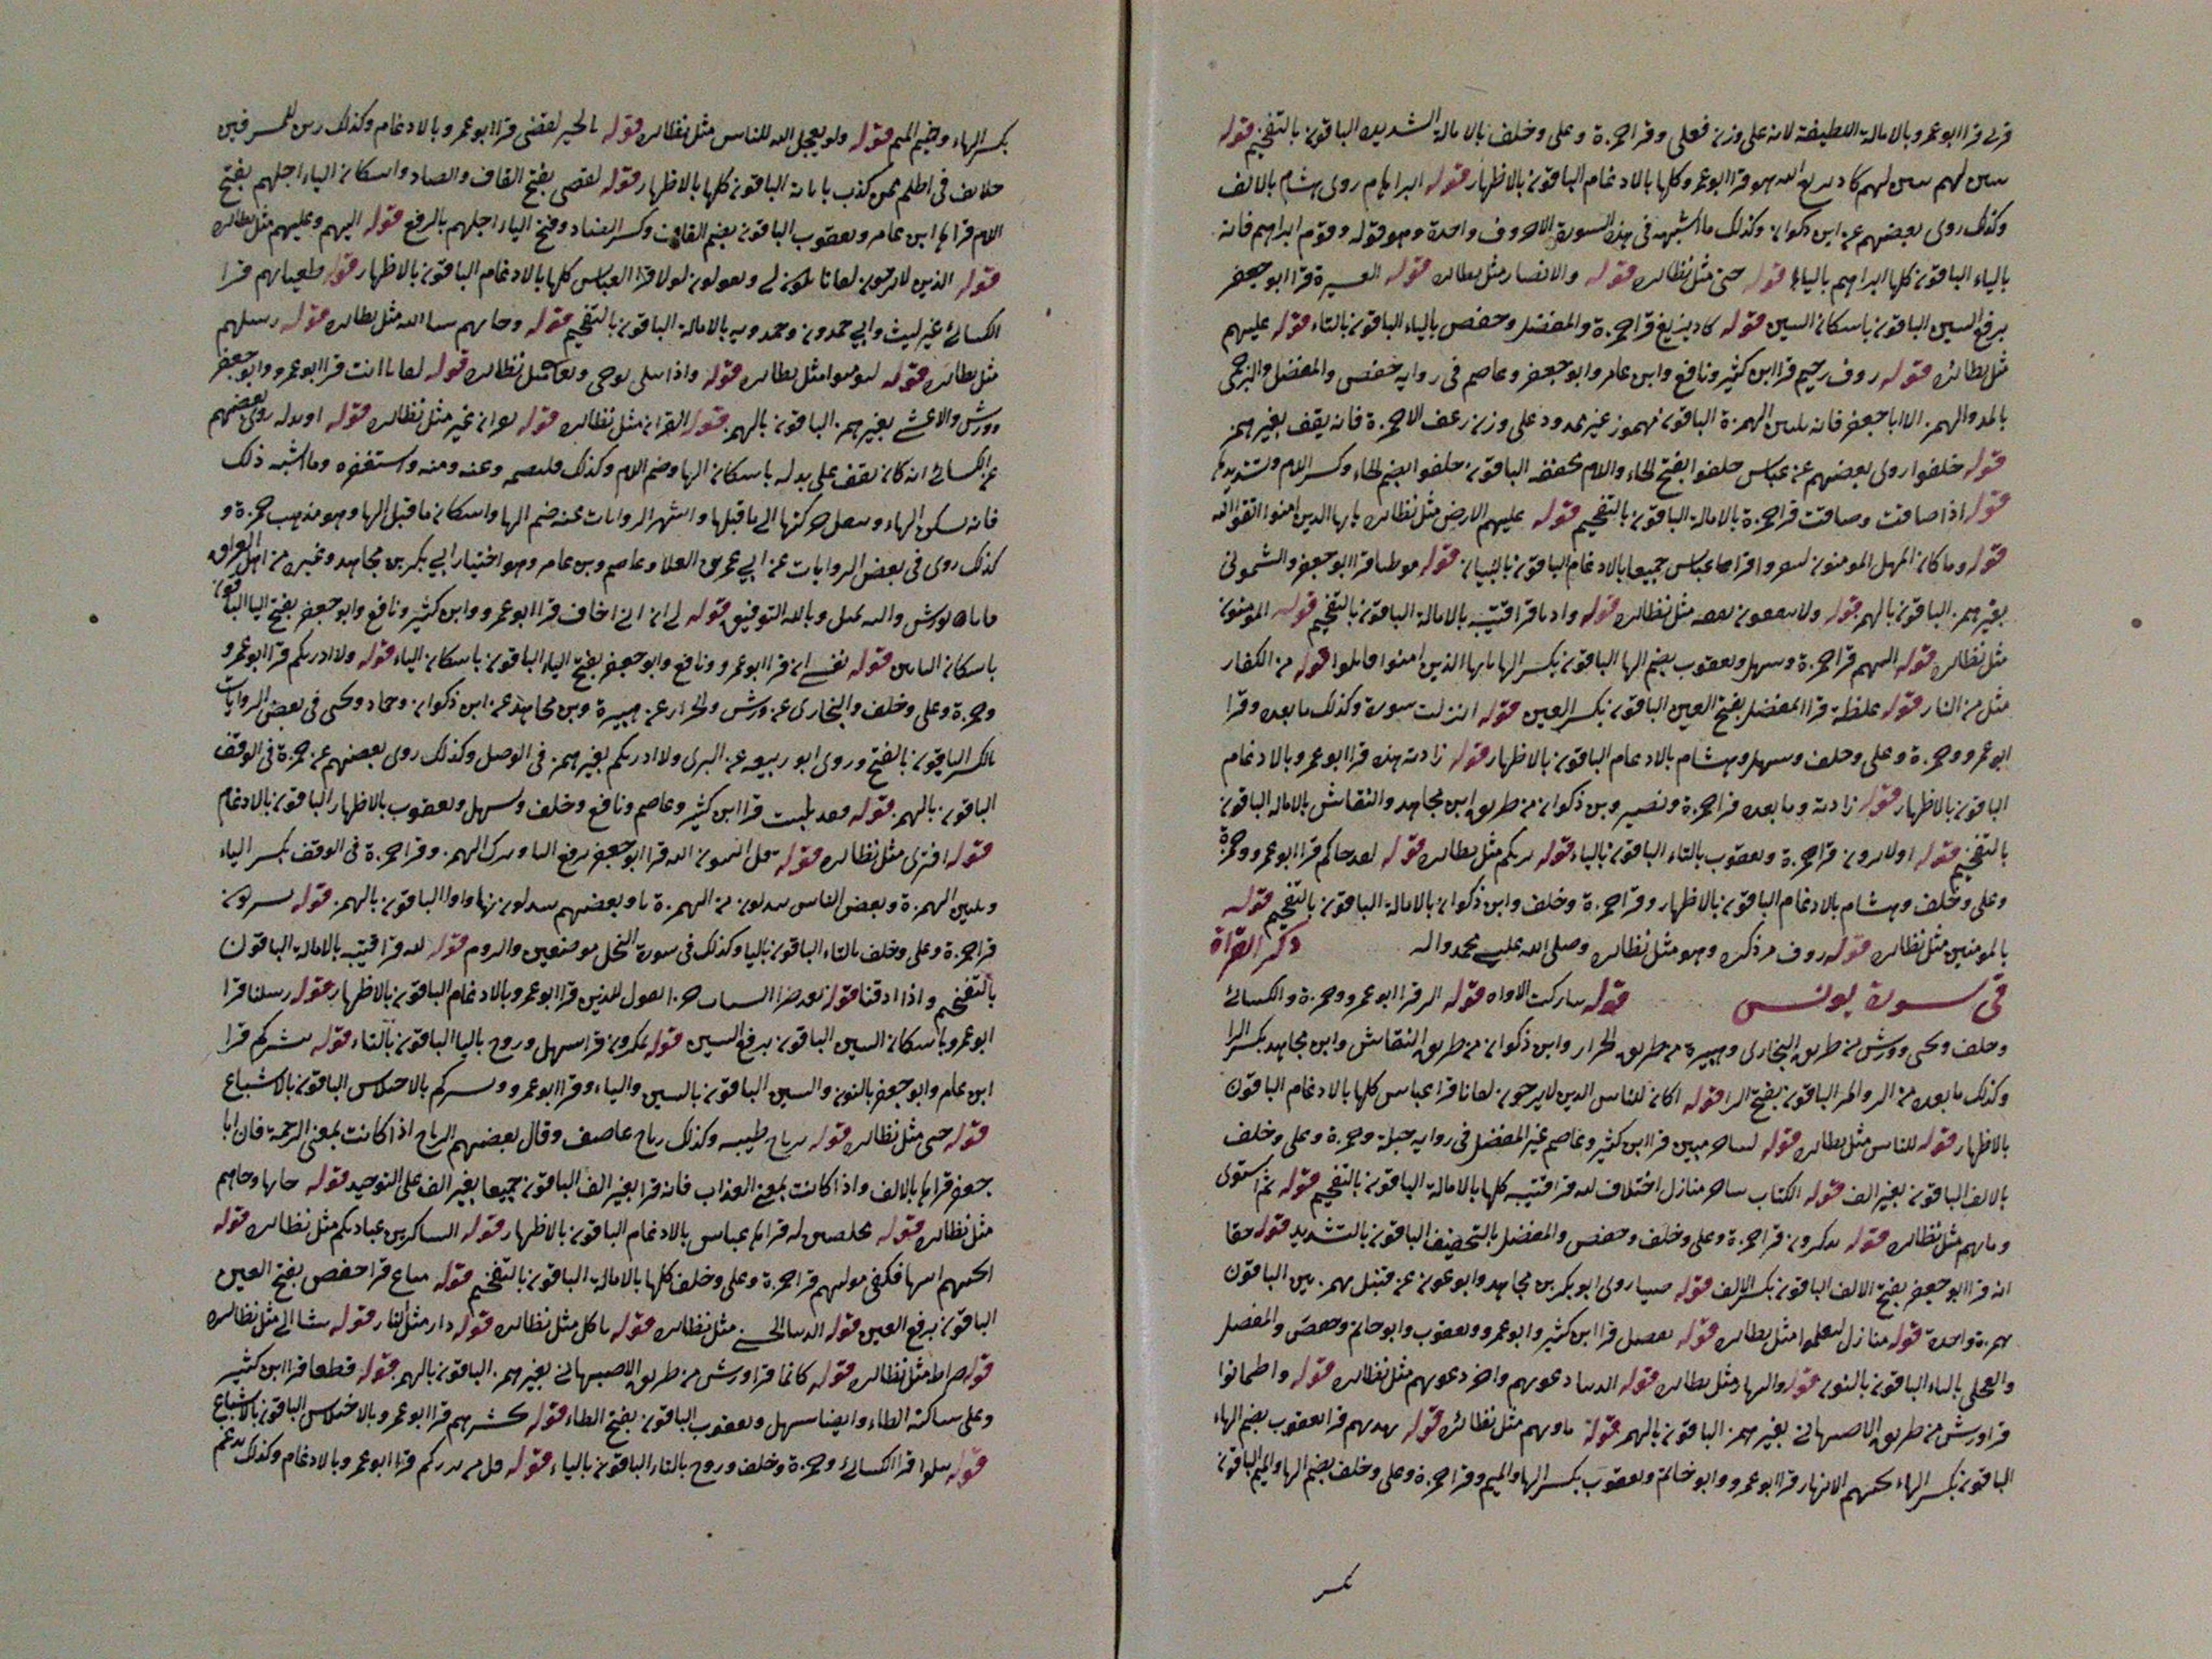 قربى قرا ابو عمرو بالامالة اللطيفة لانه على وزن فعلى وقرا حمزة وعلى وخلف بالامالة الشديده الباقون بالتفخيم قوله
تبين لهم كاد يزيغ الله هو قرا ابو عمرو كلها بالادغام الباقون بالاظهار قوله ابراهام روى هشام بالالف
وكذلك روى بعضهم عن ابن ذكوان وكذلك ما اشبهه فى هذه السورة الا حروف واحدة وهو قوله وقوم ابراهيم فانه
بالياء الباقون كلها ابراهيم بالياء قوله حتى مثل نظائره قوله والانصار مثل نظائره قوله العسرة قرا ابو جعفر
برفع السين الباقون باسكان السين قوله كاد يزيغ قرا حمزة والمفضل وحفص بالياء الباقون بالتاء قوله عليهم
مثل نظائره قوله روف رحيم قرا ابن كثير ونافع وابن عامر وابو جعفر وعاصم فى رواية حفص والمفضل والبرجمى
بالمد والهمز الا ابا جعفر فانه يلين الهمزة الباقون مهموز غير ممدود على وزن رعف الا حمزة فانه يقف بغير همز
قوله خلفوا روى بعضهم عن عباس خلفوا بفتح الخاء واللام مخففه الباقون خلفوا بضم الخاء وكسر اللام وتشديدها
قوله اذا ضاقت وضاقت قرا حمزة بالامالة الباقون بالتفخيم قوله عليهم الارض مثل نظائره يايها الذين امنوا اتقوا الله
قوله وما كان المومنون لينفروا قراها عباس جميعا بالادغام الباقون بالبيان قوله موطيا قرا ابو جعفر والشمونى
بغير همز الباقون بالهمز قوله ولا ينفقون نفقه مثل نظائره قوله واديا قرا قتيبه بالامالة الباقون بالتفخيم قوله المومنون
مثل نظائره قوله اليهم قرا حمزة وسهل ويعقوب بضم الها الباقون بكسر الها يايها الذين امنوا قاتلوا قوله من الكفار
مثل من النار قوله غلظة قرا المفضل بفتح الغين الباقون بكسر الغين قوله انزلت سورة وكذلك ما بعده وقرا
ابو عمرو وحمزة وعلى وخلف وسهل وهشام بالادغام الباقون بالاظهار قوله زادته هذه قرا ابو عمرو بالادغام
الباقون بالاظهار قوله زادته وما بعده قرا حمزة ونصير وبن ذكوان من طريق ابن مجاهد والنقاش بالاماله الباقون
بالتفخيم قوله اولا يرون قرا حمزة ويعقوب بالتاء الباقون بالياء قوله يريكم مثل نظائره قوله لقد جاكم قرا ابو عمرو وحمزة
وعلى وخلف وهشام بالادغام الباقون بالاظهار وقرا حمزة وخلف وابن ذكوان بالامالة الباقون بالتفخيم قوله
بالمومنين مثل نظائره قوله روف مر ذكره وهو مثل نظائره وصلى الله على محمد واله ذكر القراة
فى سورة يونس قوله تباركت الاواه قوله الر قرا ابو عمرو وحمزة والكسائى
وخلف ويحيى وورش من طريق البخارى وهبيرة من طريق الخراز وابن ذكوان من طريق النقاش وابن مجاهد بكسر الرا
وكذلك ما بعده من الر والمر الباقون بفتح الرا قوله اكان للناس الذين لا يرجون لقانا قرا عباس كلها بالادغام الباقون
بالاظهار قوله للناس مثل نظائره قوله لساحر مبين قرا ابن كثير وعاصم غير المفضل فى رواية جبلة وحمزة وعلى وخلف
بالالف الباقون بغير الف قوله الكتاب ساحر منازل اختلاف لله قرا قتيبه كلها بالامالة الباقون بالتفخيم قوله ثم استوى
وماويهم مثل نظائره قوله تذكرون قرا حمزة وعلى وخلف وحفص والمفضل بالتخفيف الباقون بالتشديد قوله حقا
انه قرا ابو جعفر بفتح الالف الباقون بكسر الالف قوله ضياء روى ابو بكر بن مجاهد وابو عون عن قنبل بهمزتين الباقون
بهمزة واحدة قوله منازل لتعلموا مثل نظائره قوله يفصل قرا ابن كثير وابو عمرو ويعقوب وابو حاتم وحفص والمفضل
والعجلى بالياء الباقون بالنون قوله والنهار مثل نظائره قوله الدنيا دعويهم واخر دعويهم مثل نظائره قوله واطمانوا
قرا ورش من طريق الاصبهانى بغير همز الباقون بالهمز قوله ماويهم مثل نظائره قوله يهديهم قرا يعقوب بضم الهاء
الباقون بكسر الهاء تحتهم الانهار قرا ابو عمرو وابو حاتم ويعقوب بكسر الها والميم وقرا حمزة وعلى وخلف بضم الها والميم الباقون
بكسر الهاء وضم الميم قوله ولو يعجل الله للناس مثل نظائره قوله بالخير لقضى قرا ابو عمرو بالادغام وكذلك زين للمسرفين
خلائف فى اظلم ممن كذب باياته الباقون كلها بالاظهار قوله لقضى بفتح القاف والضاد واسكان الياء اجلهم بفتح
اللام قراها ابن عامر ويعقوب الباقون بضم القاف وكسر الضاد وفتح الياء اجلهم بالرفع قوله اليهم وعليهم مثل نظائره
قوله الذين لا يرجون لقانا يكون لى ويقولون لولا قرا العباس كلها بالادغام الباقون بالاظهار قوله طغيانهم قرا
الكسائى غير ليث وابى حمدون وحمدويه بالامالة الباقون بالتفخيم قوله وجاتهم شا الله مثل نظائره قوله رسلهم
مثل نظائره قوله ليومنوا مثل نظائره قوله واذا تتلى يوحى وتعالى مثل نظائره قوله لقانا ائت قرا ابو عمرو وابو جعفر
وورش والاعشى بغير همز الباقون بالهمز قوله القران مثل نظائره قوله بقران غير مثل نظائره قوله او بدله روى بعضهم
عن الكسائى انه كان يقف على بدله باسكان الها وضم اللام وكذلك فليصمه وعنه ومنه واستغفره وما اشبه ذلك
فانه يسكن الهاء وينقل حركتها الى ما قبلها واشهر الروايات عنه ضم الها واسكان ما قبل الها وهو مذهب حمزة و
كذلك روى فى بعض الروايات عن ابى عمرو بن العلا وعاصم وبن عامر وهو اختيار ابى بكر بن مجاهد وغيره من اهل العراق
وبالله التوفيق قوله لى ان انى اخاف قرا ابو عمرو وابن كثير ونافع وابو جعفر بفتح اليا الباقون
باسكان اليايين قوله نفسى ان قرا ابو عمرو ونافع وابو جعفر بفتح الياء الباقون باسكان الياء قوله ولا ادريكم قرا ابو عمرو
وحمزة وعلى وخلف والبخارى عن ورش والخراز عن هبيرة وبن مجاهد عن ابن ذكوان وحماد ويحيى فى بعض الروايات
بالكسر الباقون بالفتح وروى ابو ربيعه عن البزى ولا ادريكم بغير همز فى الوصل وكذلك روى بعضهم عن حمزة فى الوقف
الباقون بالهمز قوله فقد لبثت قرا ابن كثير وعاصم ونافع وخلف وسهل ويعقوب بالاظهار الباقون بالادغام
قوله افترى مثل نظائره قوله قل اتنبون الله قرا ابو جعفر برفع البا وترك الهمز وقرا حمزة فى الوقف بكسر الياء
وتليين الهمزة وبعض الناس يبدلون من الهمزة يا وبعضهم يبدلونها واوا الباقون بالهمز قوله يشركون
قرا حمزة وعلى وخلف بالتاء الباقون باليا وكذلك فى سورة النحل موضعين والروم قوله لله قرا قتيبه بالامالة الباقون
بالتفخيم واذا اذقنا قوله بعد ضرا السيات نقول للذين قرا ابو عمرو بالادغام الباقون بالاظهار قوله رسلنا قرا
ابو عمرو باسكان السين الباقون برفع السين قوله تمكرون قرا سهل وروح باليا الباقون بالتاء قوله ينشركم قرا
ابن عامر وابو جعفر بالنون والشين الباقون بالسين والياء وقرا ابو عمرو ويسيركم بالاختلاس الباقون بالاشباع
قوله حتى مثل نظائره قوله بريح طيبه وكذلك رياح عاصف وقال بعضهم الرياح اذا كانت بمعنى الرحمة فان ابا
جعفر قراها بالالف واذا كانت بمعنى العذاب فانه قرا بغير الف الباقون جميعا بغير الف على التوحيد قوله جاتها وجاهم
مثل نظائره قوله مخلصين له قراها عباس بالادغام الباقون بالاظهار قوله الشاكرين عبادتكم مثل نظائره قوله
انجيهم اتيها فكفى موليهم قرا حمزة وعلى وخلف كلها بالامالة الباقون بالتفخيم قوله متاع قرا حفص بفتح العين
الباقون برفع العين قوله الدنيا الحسنى مثل نظائره قوله ياكل مثل نظائره قوله دار مثل النار قوله يشا الى مثل نظائره
قوله صراط مثل نظائره قوله كانما قرا ورش من طريق الاصبهانى بغير همز الباقون بالهمز قوله قطعا قرا ابن كثير
وعلى ساكنة الطاء وايضا سهل ويعقوب الباقون بفتح الطاء قوله نحشرهم قرا ابو عمرو بالاختلاس الباقون بالاشباع
قوله تتلوا قرا الكسائى وحمزة وخلف وروح بالتاء الباقون بالياء قوله قل من يرزقكم قرا ابو عمرو بالادغام وكذلك يدغم